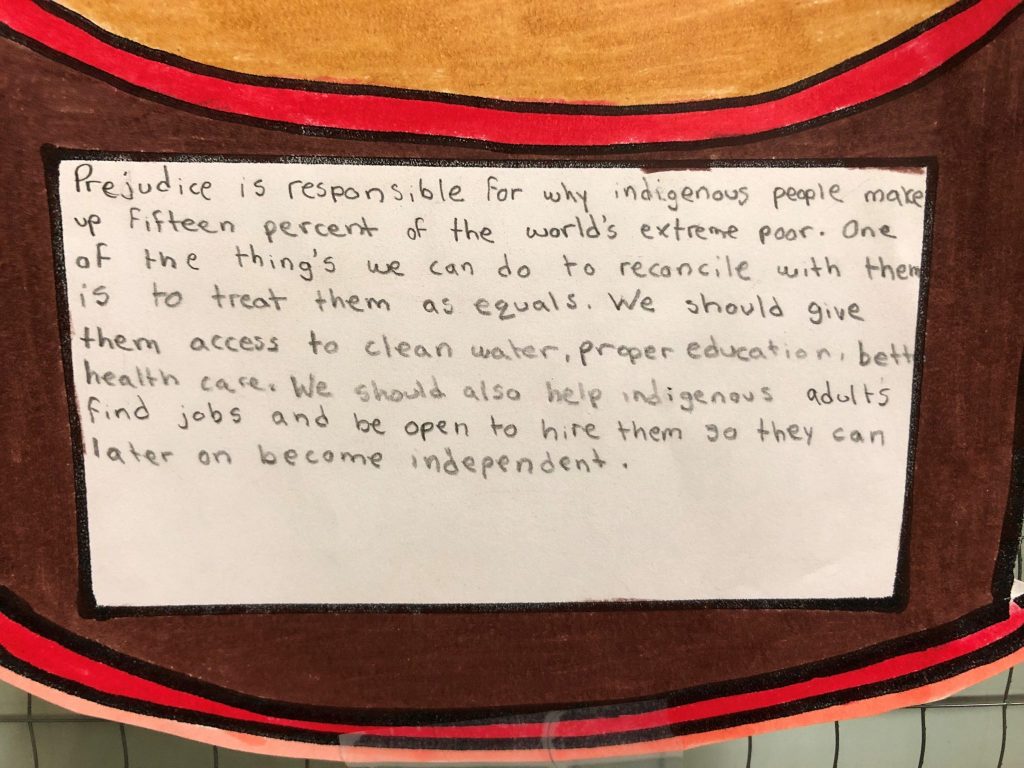 Prejudice is responsible for why indigenous people make
up fifteen percent of the world's extreme poor. One
of the thing's we can do to reconcile with them
is to treat them as equals. We should give
them access to clean water, proper education, bett
health care. We should also help indigenous adults
find jobs and be open to hire them so they can
later on become independent.